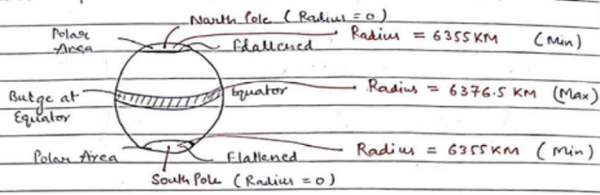 North Pole (Radius = 0)
Polar Area
Fdattened
Radius = 6355 KM (Min)
Bulge at Equator
Equator
Radius = 6376.5 KM (Max)
Polar Area
Flattened
Radius = 6355 KM (Min)
South Pole (Radius = 0)